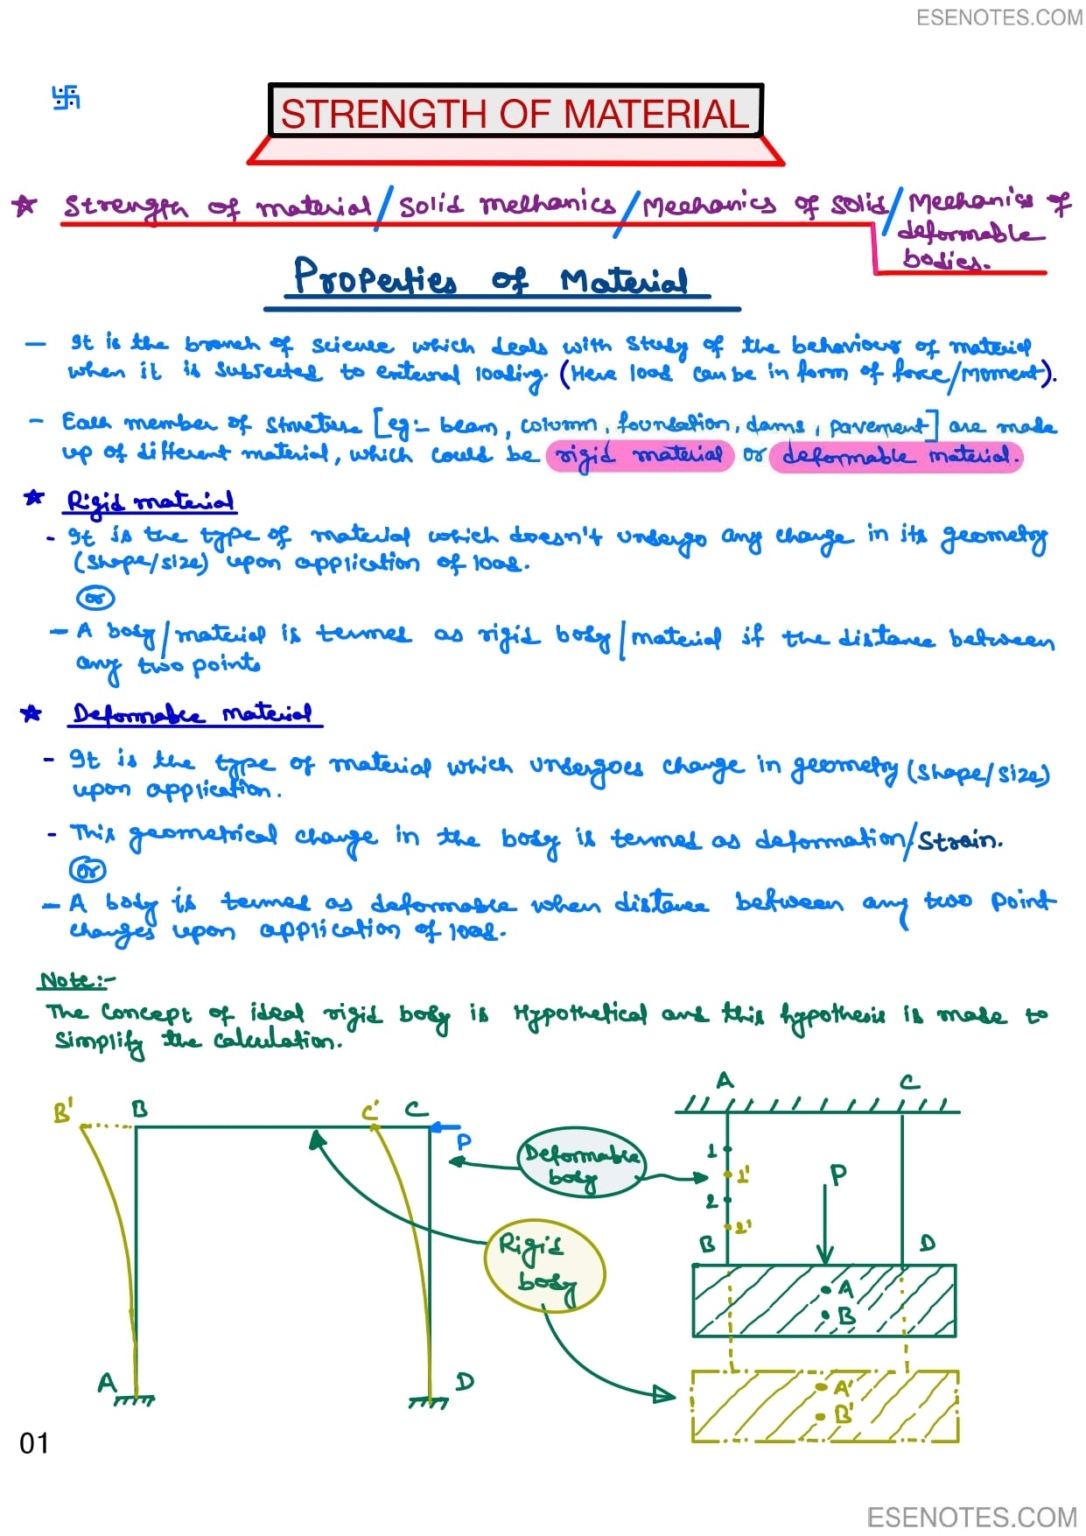 ESENOTES.COM
卐
STRENGTH OF MATERIAL
★ Strength of material/Solid mechanics/Mechanics of solid/Mechanics of
deformable
bodies.
Properties of Material
— It is the branch of science which deals with study of the behaviour of material
when it is subjected to external loading. (Here load can be in form of force/Moment).
- Each member of structure [eg:- beam, column, foundation, dams, pavement] are made
up of different material, which could be rigid material or deformable material.
★ Rigid material
- It is the type of material which doesn't undergo any change in its geometry
(shape/size) upon application of load.
or
- A body/material is termed as rigid body/material if the distance between
any two points
★ Deformable material
- It is the type of material which undergoes change in geometry (shape/size)
upon application.
- This geometrical change in the body is termed as deformation/Strain.
or
- A body is termed as deformable when distance between any two point
changes upon application of load.
Note:-
The concept of ideal rigid body is Hypothetical and this hypothesis is made to
simplify the calculation.
B' B C' C
P
A D
Deformable
body
Rigid
body
A C
1
1'
2
2'
P
B D
A
B
A'
B'
01
ESENOTES.COM